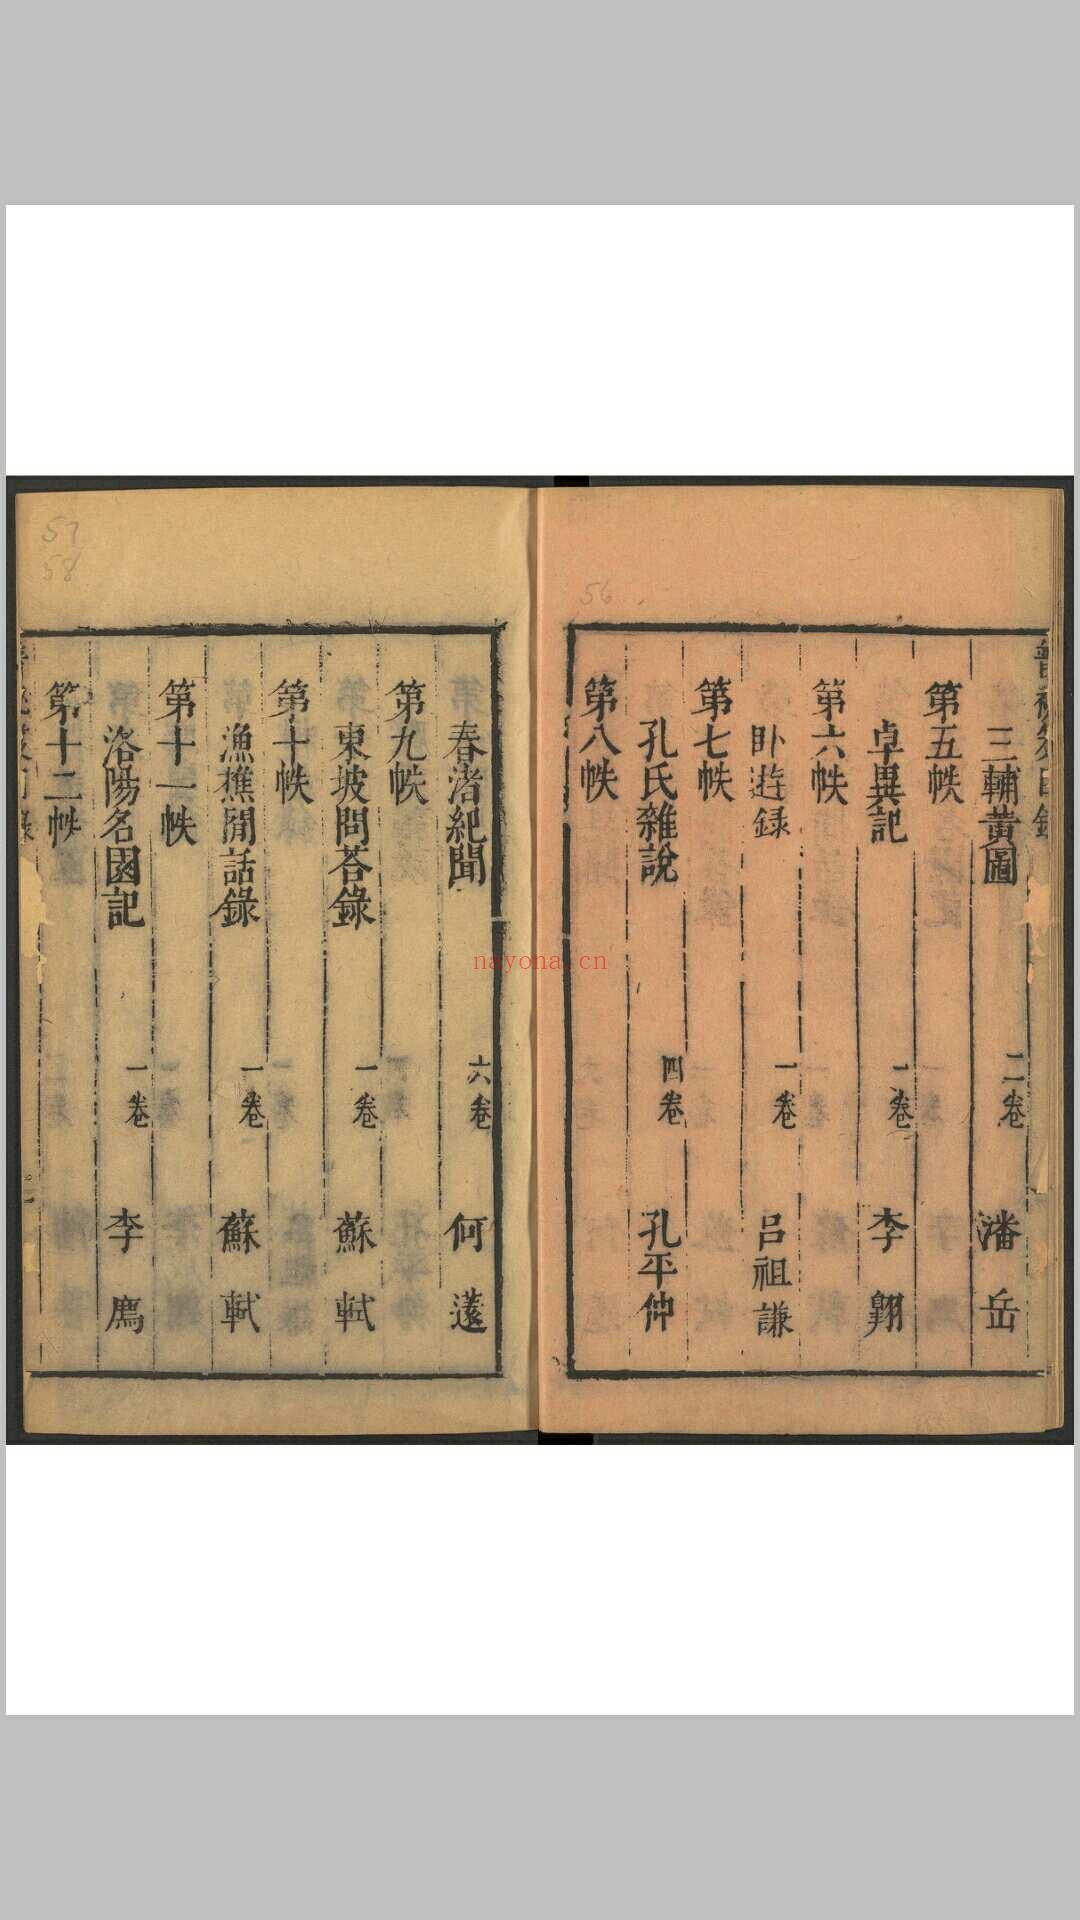 三輔黃圖 二卷 潘岳
第五帙
卓異記 一卷 李翺
第六帙
卧遊録 一卷 呂祖謙
第七帙
孔氏雜說 四卷 孔平仲
第八帙
春渚紀聞 六卷 何薳
第九帙
東坡問荅錄 一卷 蘇軾
第十帙
漁樵閒話錄 一卷 蘇軾
第十一帙
洛陽名園記 一卷 李廌
第十二帙
56
57
58
nayona.cn